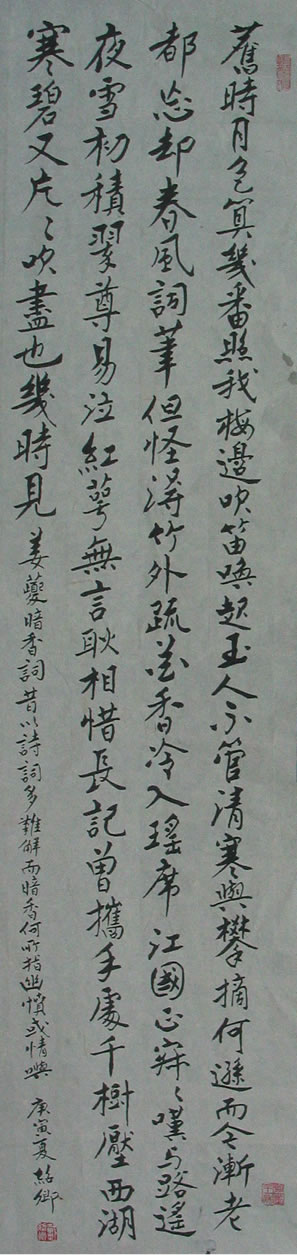 舊時月色算幾番照我梅邊吹笛喚起玉人不管清寒與攀摘何遜而今漸老
都忘却春風詞筆但怪得竹外疏花香冷入瑤席江國正寂々嘆与路遙
夜雪初積翠尊易泣紅萼無言耿相惜長記曾攜手處千樹壓西湖
寒碧又片々吹盡也幾時見
姜夔暗香詞昔以詩詞多難解而暗香何所指幽憤或情與 庚寅夏紹卿